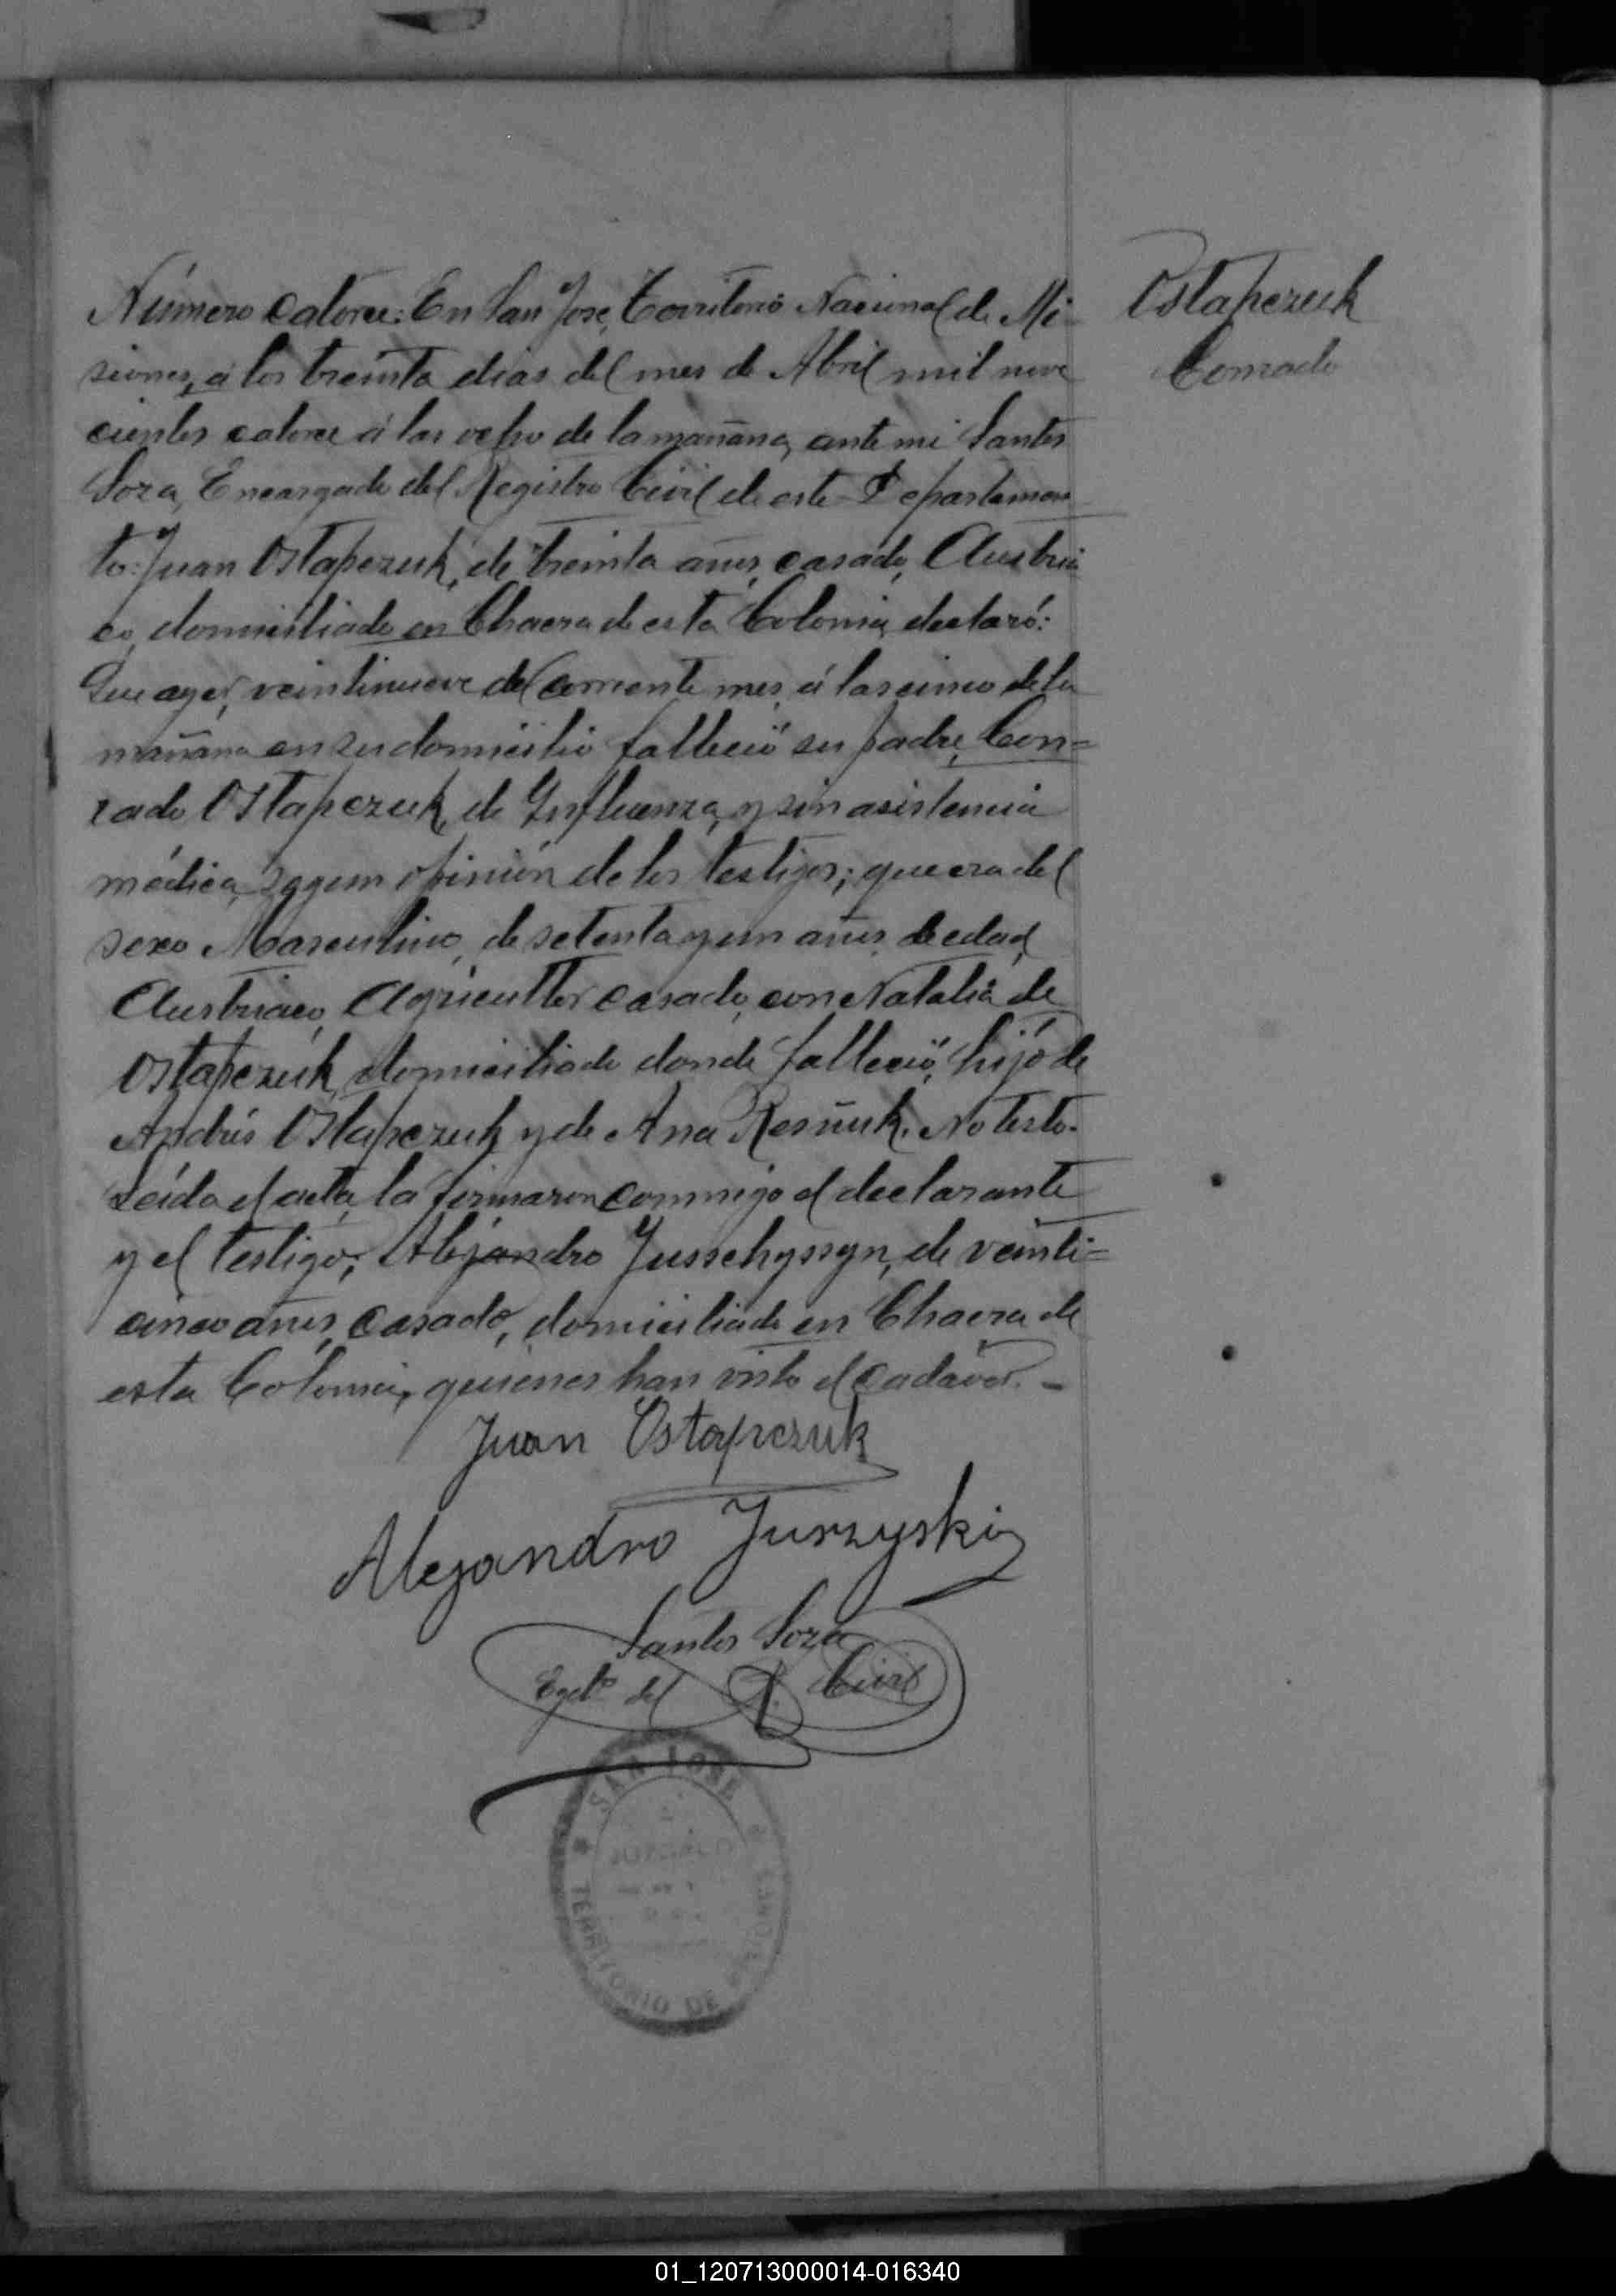 Número catorce: En San José, Territorio Nacional de Mi-
siones, á los treinta dias del mes de Abril mil nove
cientos catorce á las ocho de la mañana, ante mi Santos
Soza, Encargado del Registro Civil de este Departamen
to: Juan Ostapczuk, de treinta años, casado, Austria
co, domiciliado en Chacra de esta Colonia, declaró:
Que ayer, veintinueve del corriente mes, á las cinco de la
mañana en su domicilio falleció su padre, Con=
rado Ostapczuk, de Influenza, y sin asistencia
médica, segun opinión de los testigos; que era del
sexo Masculino, de setenta y un años de edad,
Austriaco, Agricultor casado, con Natalia de
Ostapczuk, domiciliado donde falleció, hijo de
Andrés Ostapczuk y de Ana. No testo.
Leida el acta, la firmaron conmigo el declarante
y el testigo; Alejandro Jusschyssyn, de veinti=
cinco años, casado, domiciliado en Chacra de
esta Colonia, quienes han visto el cadáver. -
Ostapczuk
Conrado
Juan Ostapczuk
Alejandro Jurzyski
Santos Soza
Egdo del R. Civil
SAN JOSE
TERRITORIO DE MISIONES
01_120713000014-016340